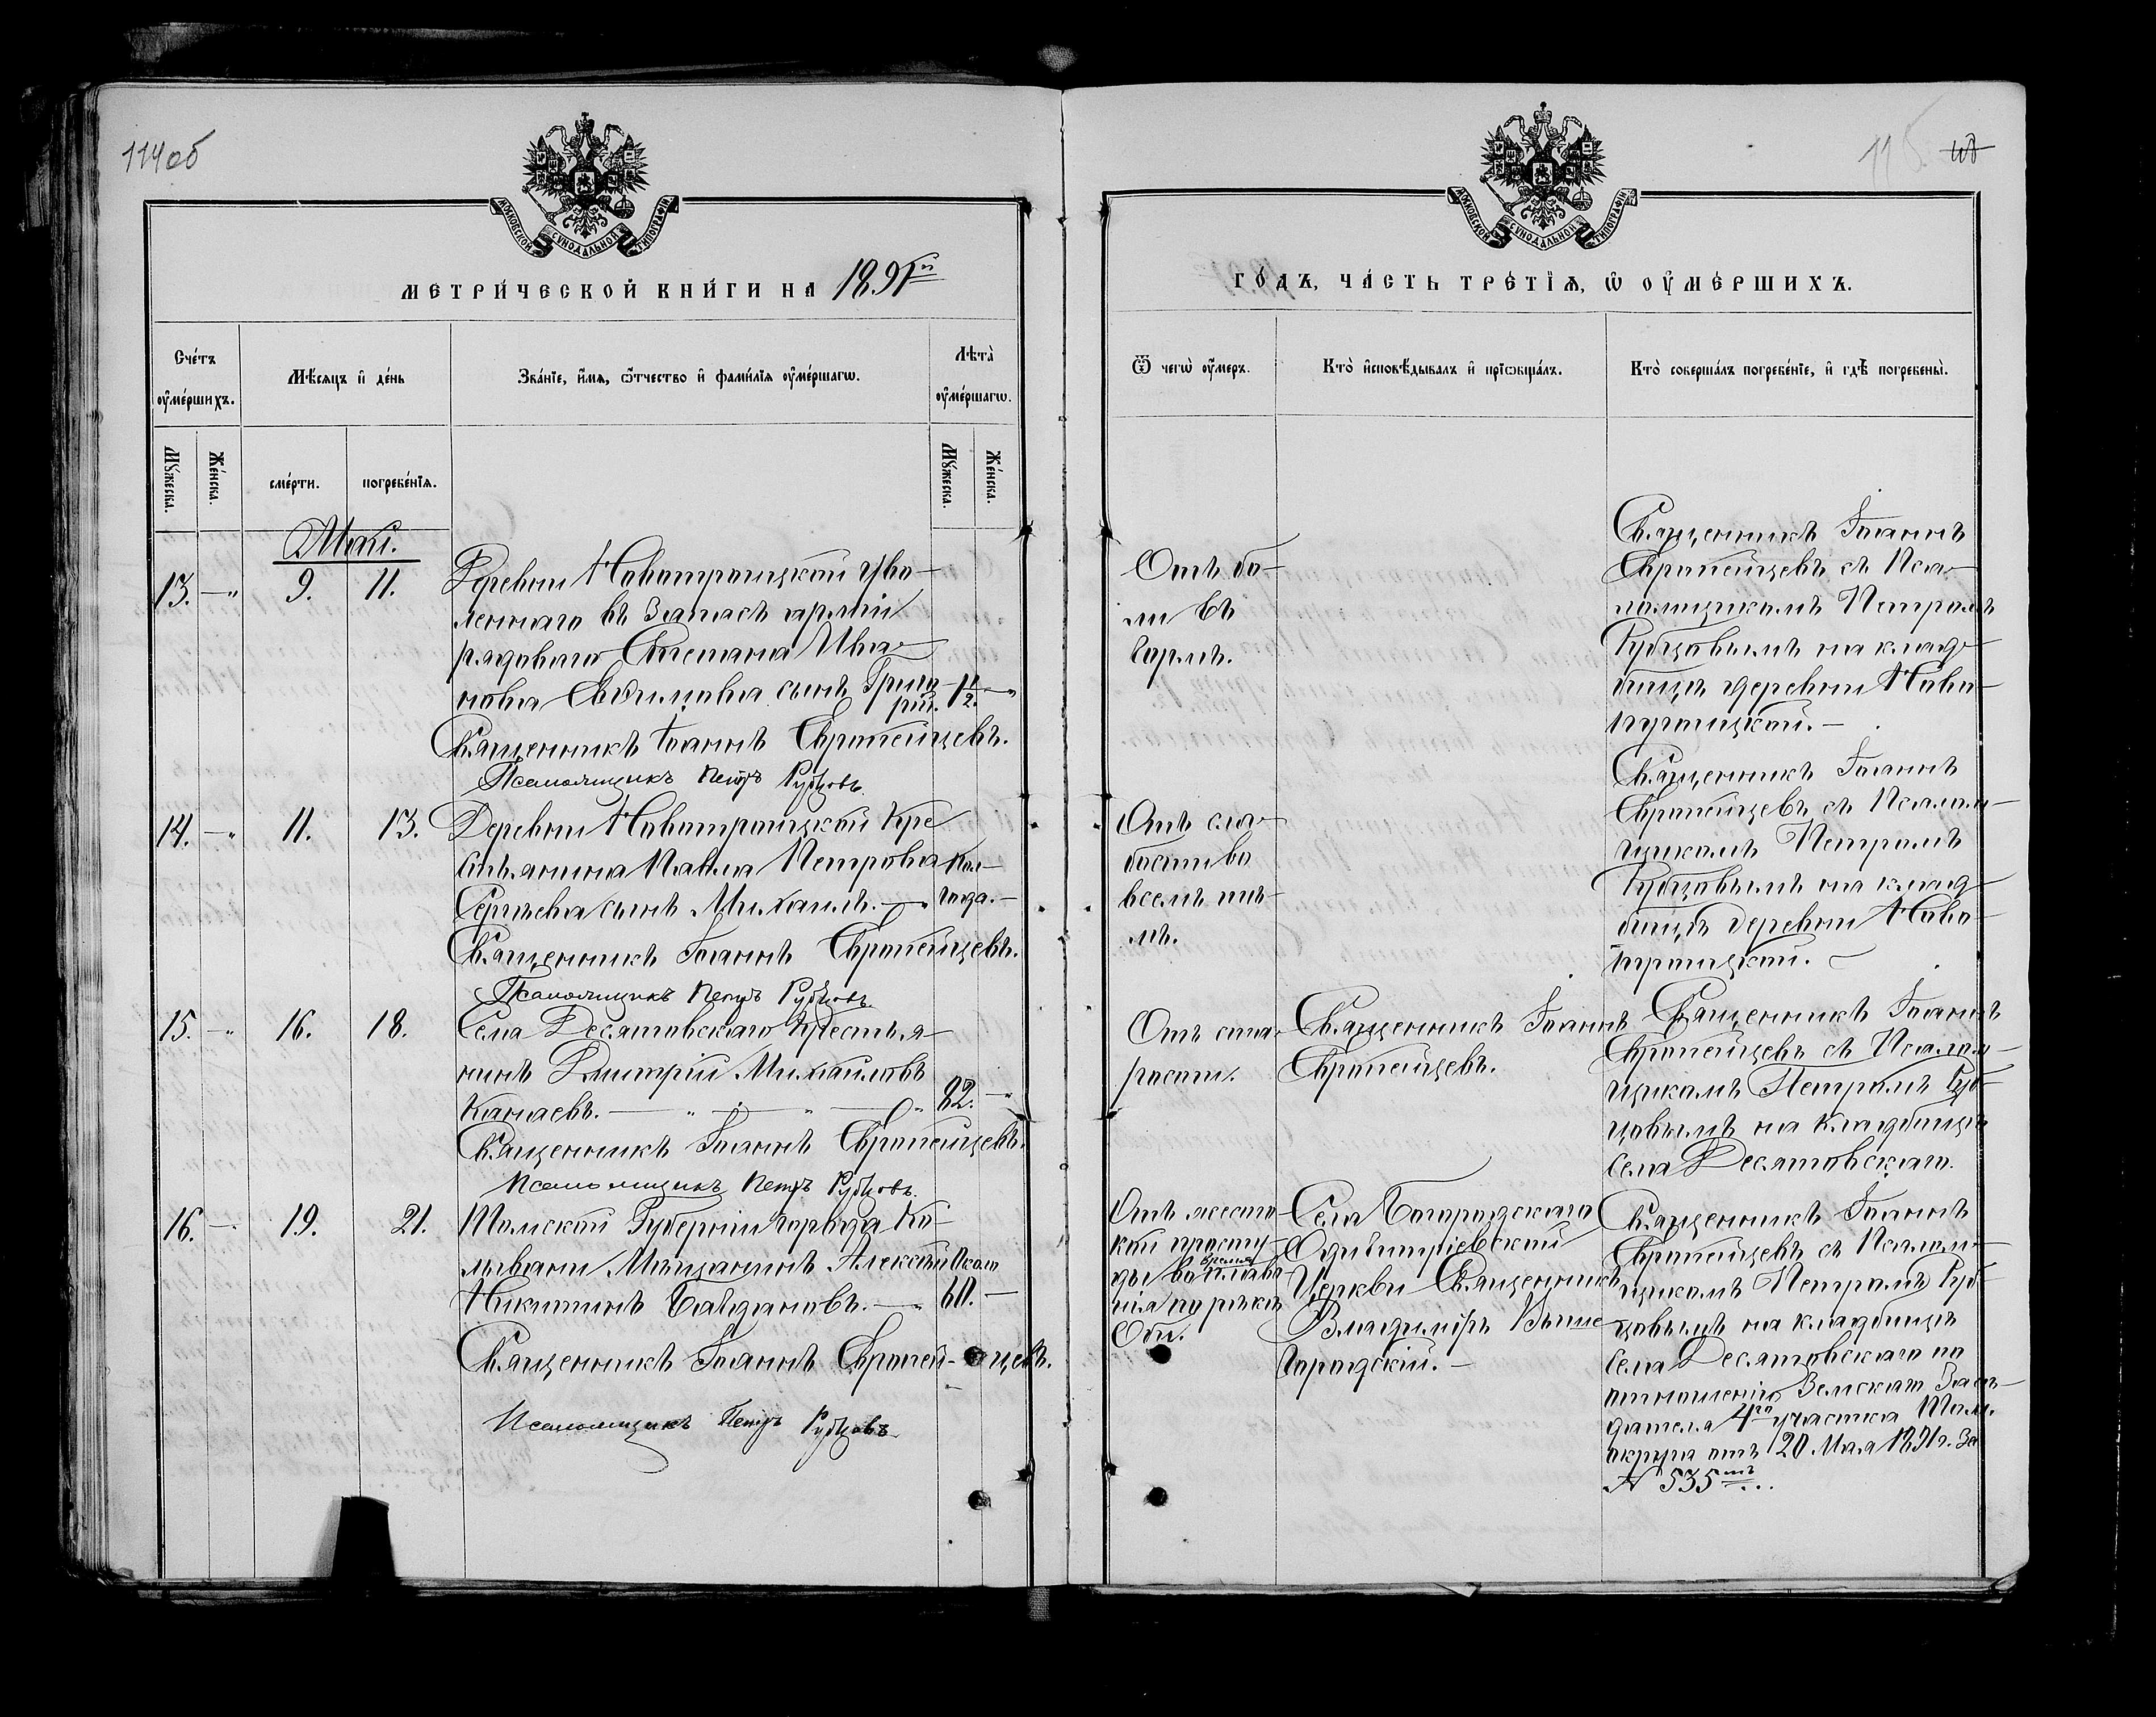 114об
МОСКОВСКОЙ СѴНОДАЛЬНОЙ ТИПОГРАФІИ
МЕТРИ́ЧЕСКОЙ КНИ́ГИ НА 1891й
Сче́тъ оу҆ме́ршихъ.
Мѣ́сяцъ и҆ де́нь
Зва́нїе, и҆́мѧ, ѻ҆́тчество и҆ фами́лїѧ оу҆ме́ршагѡ.
Лѣта̀ оу҆ме́ршагѡ.
Мꙋ́жеска.
Же́нска.
сме́рти.
погребе́нїѧ.
Мꙋ́жеска.
Же́нска.
Май.
13. — " 9. 11. Деревни Новотроицкой уво-
леннаго въ запасъ арміи
рядоваго Степана Ива-
нова Евдимова сынъ Григо-
рій. 1 1/2. — "
Священникъ Іоаннъ Европейцевъ.
Псаломщикъ Петръ Рубцовъ.
14. — " 11. 13. Деревни Новотроицкой кре
стьянина Павла Петрова Пол-
Сергѣева сынъ Михаилъ. — " года. —
Священникъ Іоаннъ Европейцевъ.
Псаломщикъ Петръ Рубцовъ.
15. — " 16. 18. Села Десятовскаго крестья-
нинъ Дмитрій Михайловъ
Канаевъ. — " — " — " — " 82. — "
Священникъ Іоаннъ Европейцевъ.
Псаломщикъ Петръ Рубцовъ.
16. — " 19. 21. Томской Губерніи города Ко-
лывани Мѣщанинъ Алексѣй Около
Никитинъ Байдановъ. — " 60. —
Священникъ Іоаннъ Европей-цевъ.
Псаломщикъ Петръ Рубцовъ.
115.
МОСКОВСКОЙ СѴНОДАЛЬНОЙ ТИПОГРАФІИ
ГО́ДЪ, ЧА́СТЬ ТРЕ́ТЇѦ, Ѡ҆ ОУ҆МЕ́РШИХЪ.
Ѿ чегѡ̀ оу҆́меръ.
Кто̀ и҆сповѣ́дывалъ и҆ прїѡбща́лъ.
Кто̀ соверша́лъ погребе́нїе, и҆ гдѣ̀ погребены̀.
Отъ бо-
ли въ
горлѣ.
Священникъ Іоаннъ
Европейцевъ съ Псал-
ломщикомъ Петромъ
Рубцовымъ на клад-
бищѣ деревни Ново-
троицкой. —
Отъ сла-
бости во
всемъ тѣ-
лѣ.
Священникъ Іоаннъ
Европейцевъ съ Псалом-
щикомъ Петромъ
Рубцовымъ на клад-
бищѣ деревни Ново-
троицкой. —
Отъ ста-
рости.
Священникъ Іоаннъ
Европейцевъ.
Священникъ Іоаннъ
Европейцевъ съ Псалом-
щикомъ Петромъ Руб-
цовымъ на кладбищѣ
села Десятовскаго.
Отъ жесто-
кой просту-
ды во время плава-
нія по рѣкѣ
Оби.
Села Богородскаго
Одигитріевской
Церкви Священникъ
Владиміръ Выше-
городскій. —
Священникъ Іоаннъ
Европейцевъ съ Псалом-
щикомъ Петромъ Руб-
цовымъ на кладбищѣ
села Десятовскаго по
отношенію Земскаго Засѣ-
дателя 4го участка Том.
округа отъ 20 Мая 1891г. за
№ 535мъ...